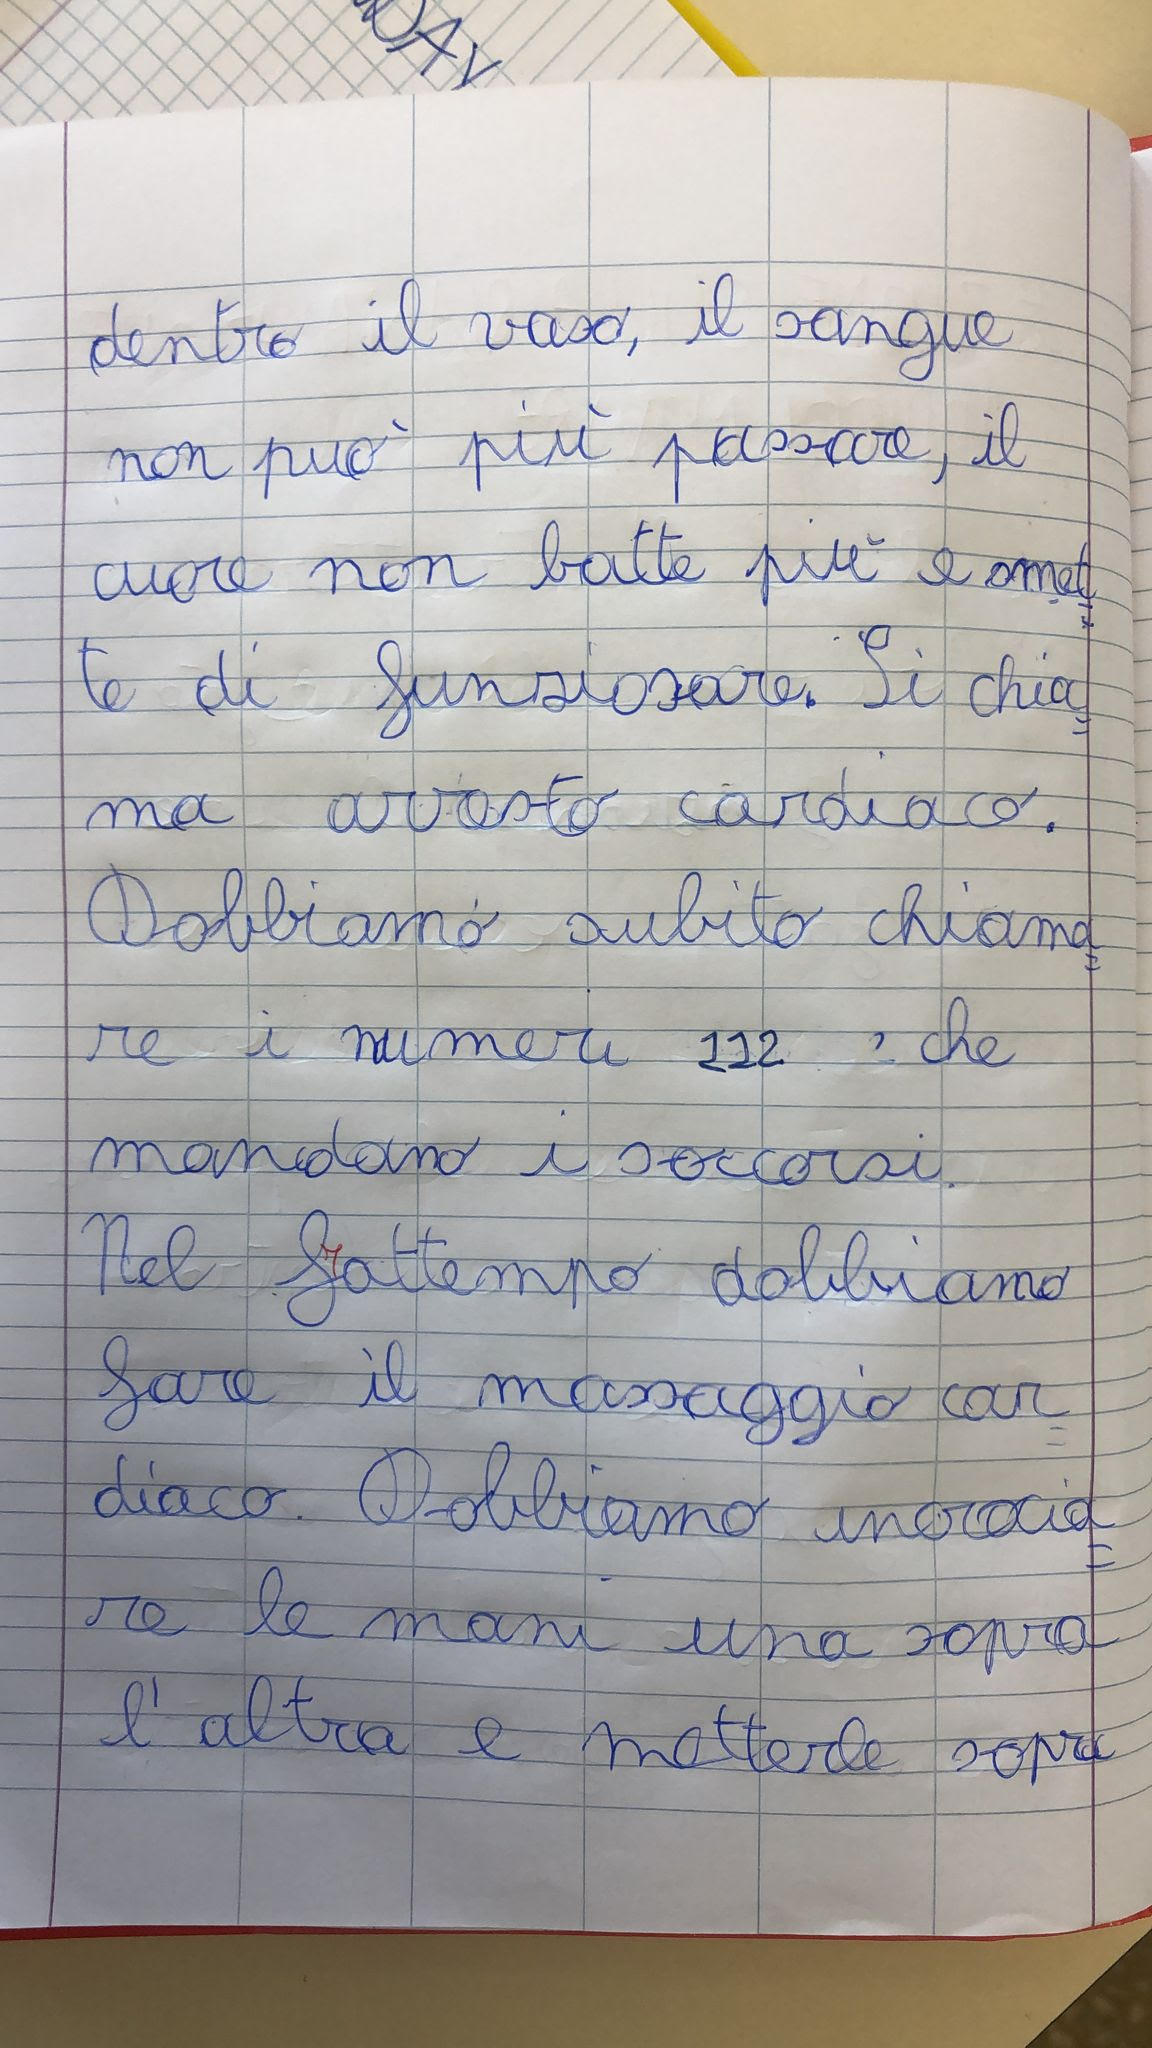 DAY
dentro il vaso, il sangue
non può più passare, il
cuore non batte più e smet=
te di funzionare. Si chia=
ma arresto cardiaco.
Dobbiamo subito chiama=
re i numeri 112 : che
mandano i soccorsi.
Nel frattempo dobbiamo
fare il massaggio car=
diaco. Dobbiamo incrocia=
re le mani una sopra
l'altra e metterle sopra